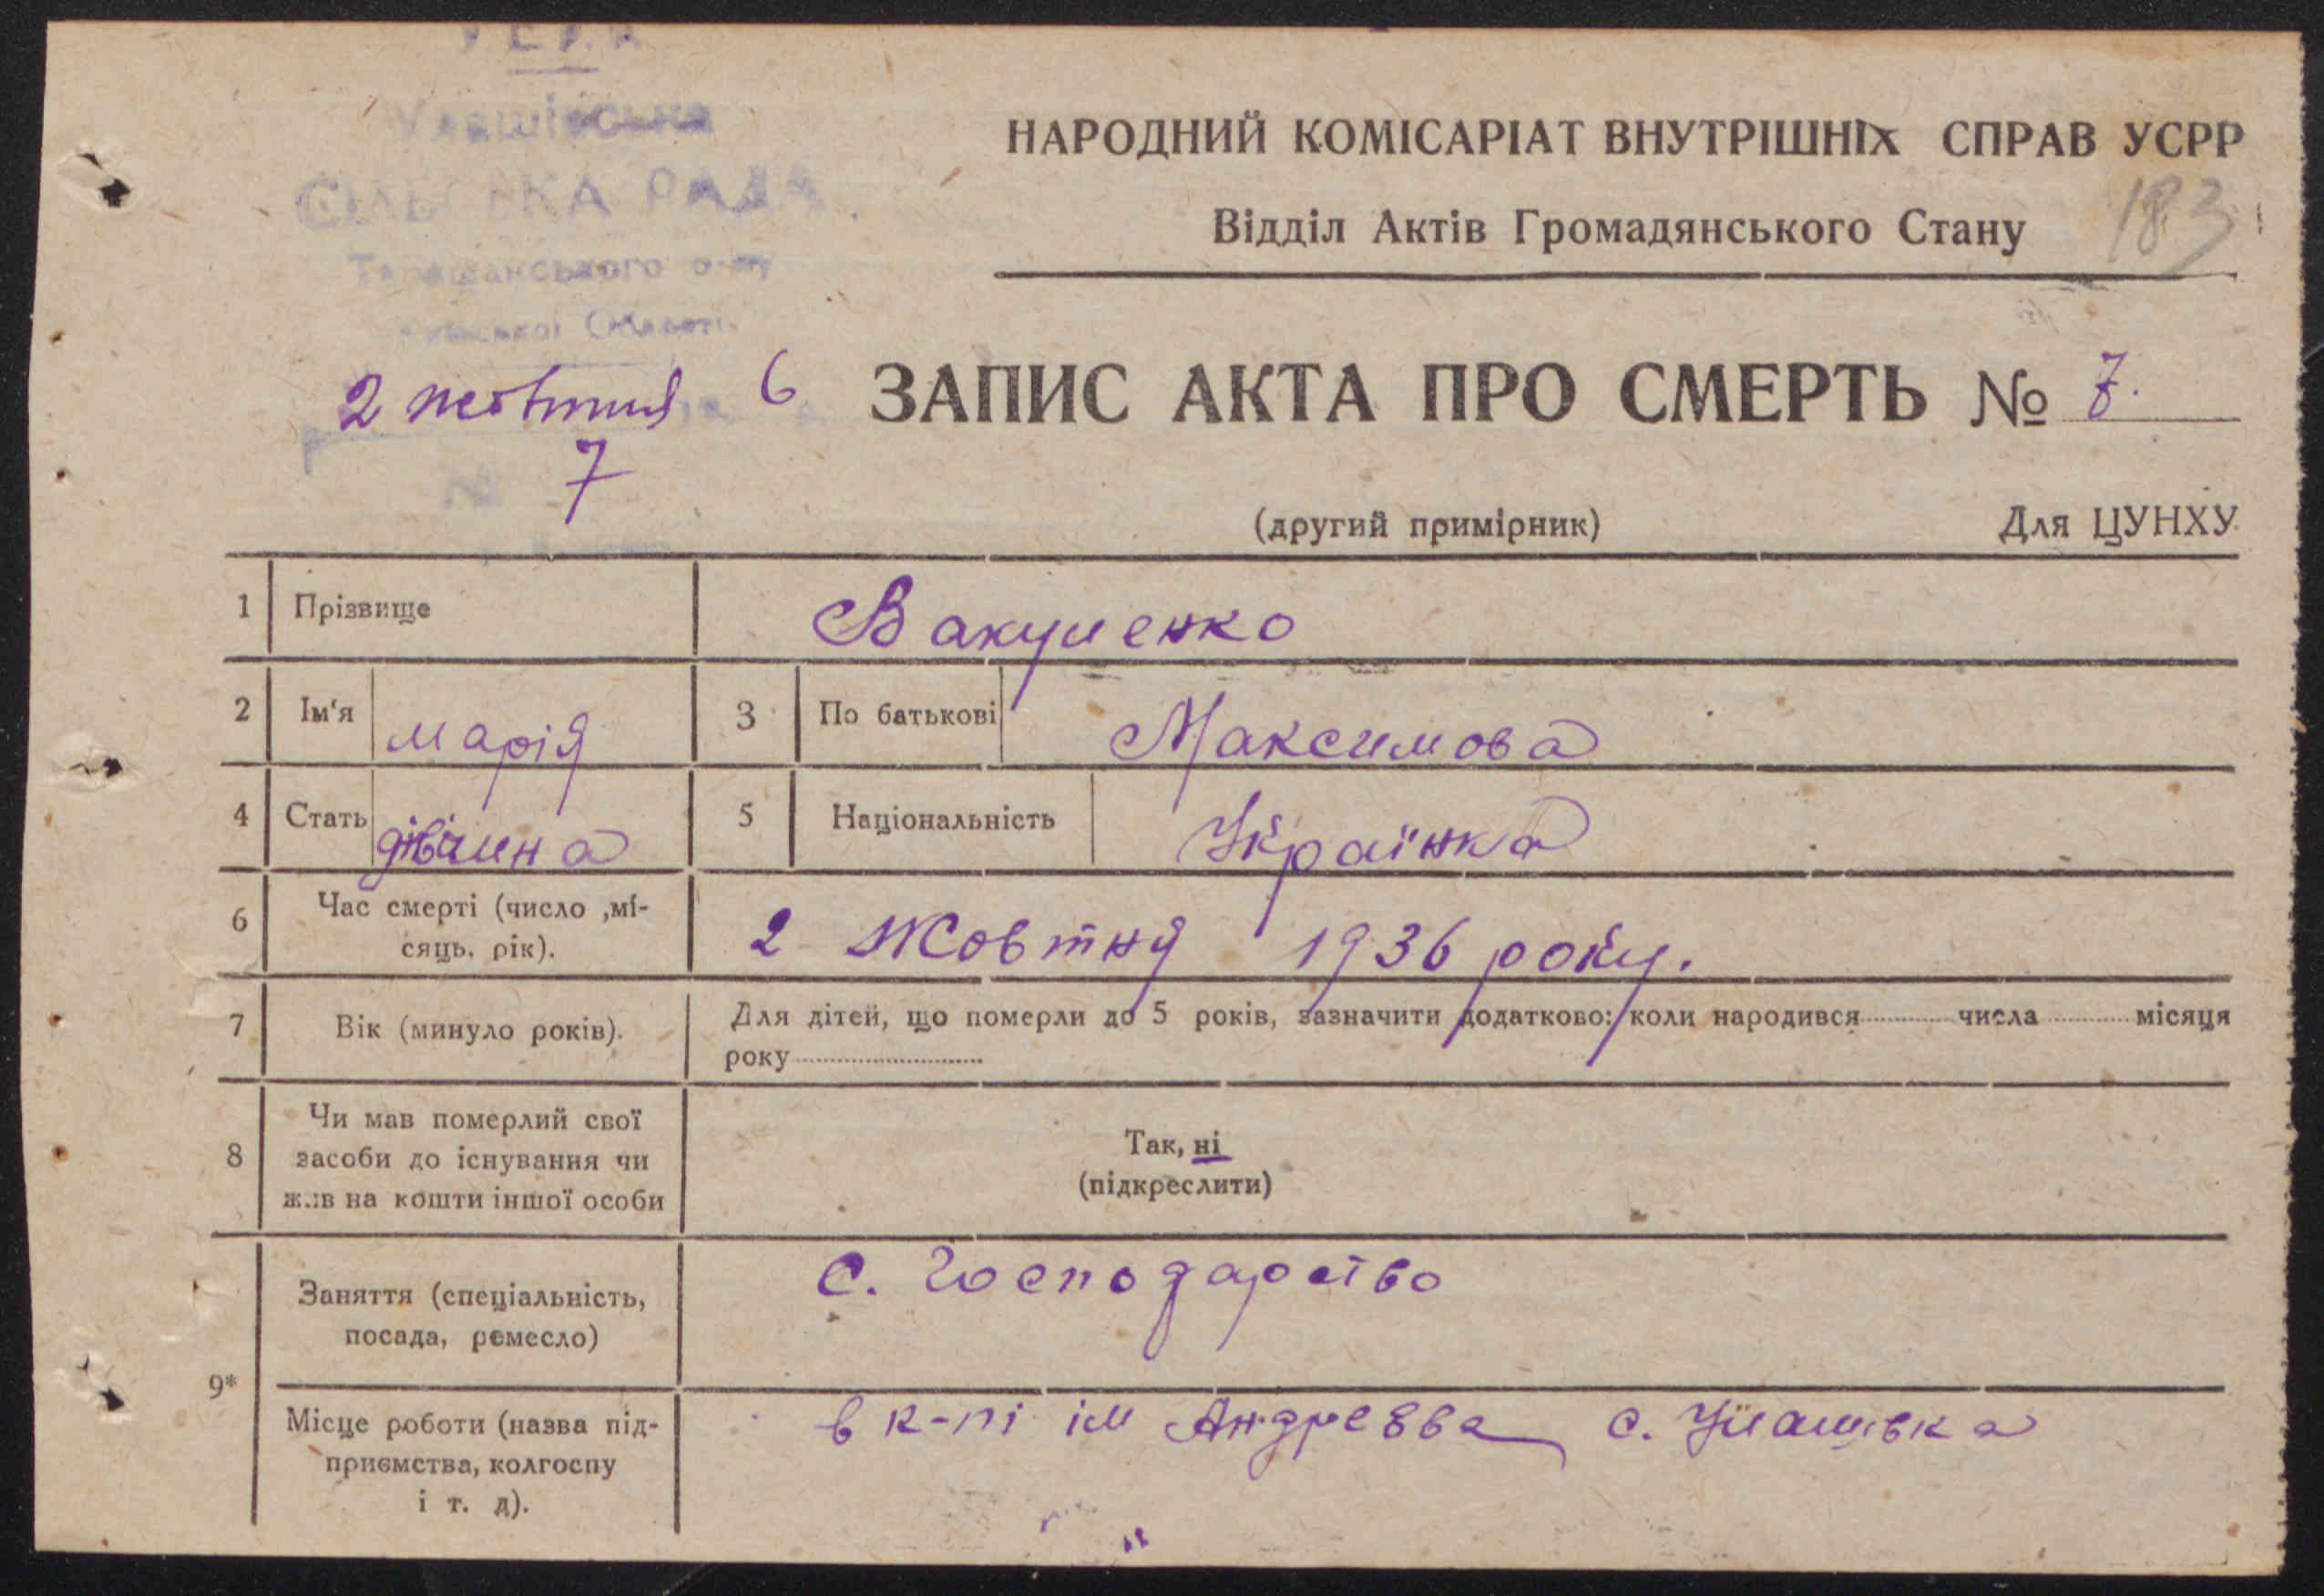 У С Р Р
Улашівська
СІЛЬСЬКА РАДА
Таращанського р-ну
Київської Області
НАРОДНИЙ КОМІСАРІАТ ВНУТРІШНІХ СПРАВ УСРР
Відділ Актів Громадянського Стану 183
2 жовтня 6
ЗАПИС АКТА ПРО СМЕРТЬ № 7.
№ 7
(другий примірник) Для ЦУНХУ
1 Прізвище Вакуленко
2 Ім'я марія 3 По батькові Максимова
4 Стать дівчина 5 Національність Українка
6 Час смерті (число ,мі-
сяць, рік). 2 Жовтня 1936 року.
7 Вік (минуло років). Для дітей, що померли до 5 років, зазначити додатково: коли народився числа місяця
року
8 Чи мав померлий свої
засоби до існування чи
жив на кошти іншої особи
Так, ні
(підкреслити)
9*
Заняття (спеціальність,
посада, ремесло)
С. господарство
Місце роботи (назва під-
приємства, колгоспу
і т. д).
в к-пі ім Андреєва с. Улашівка